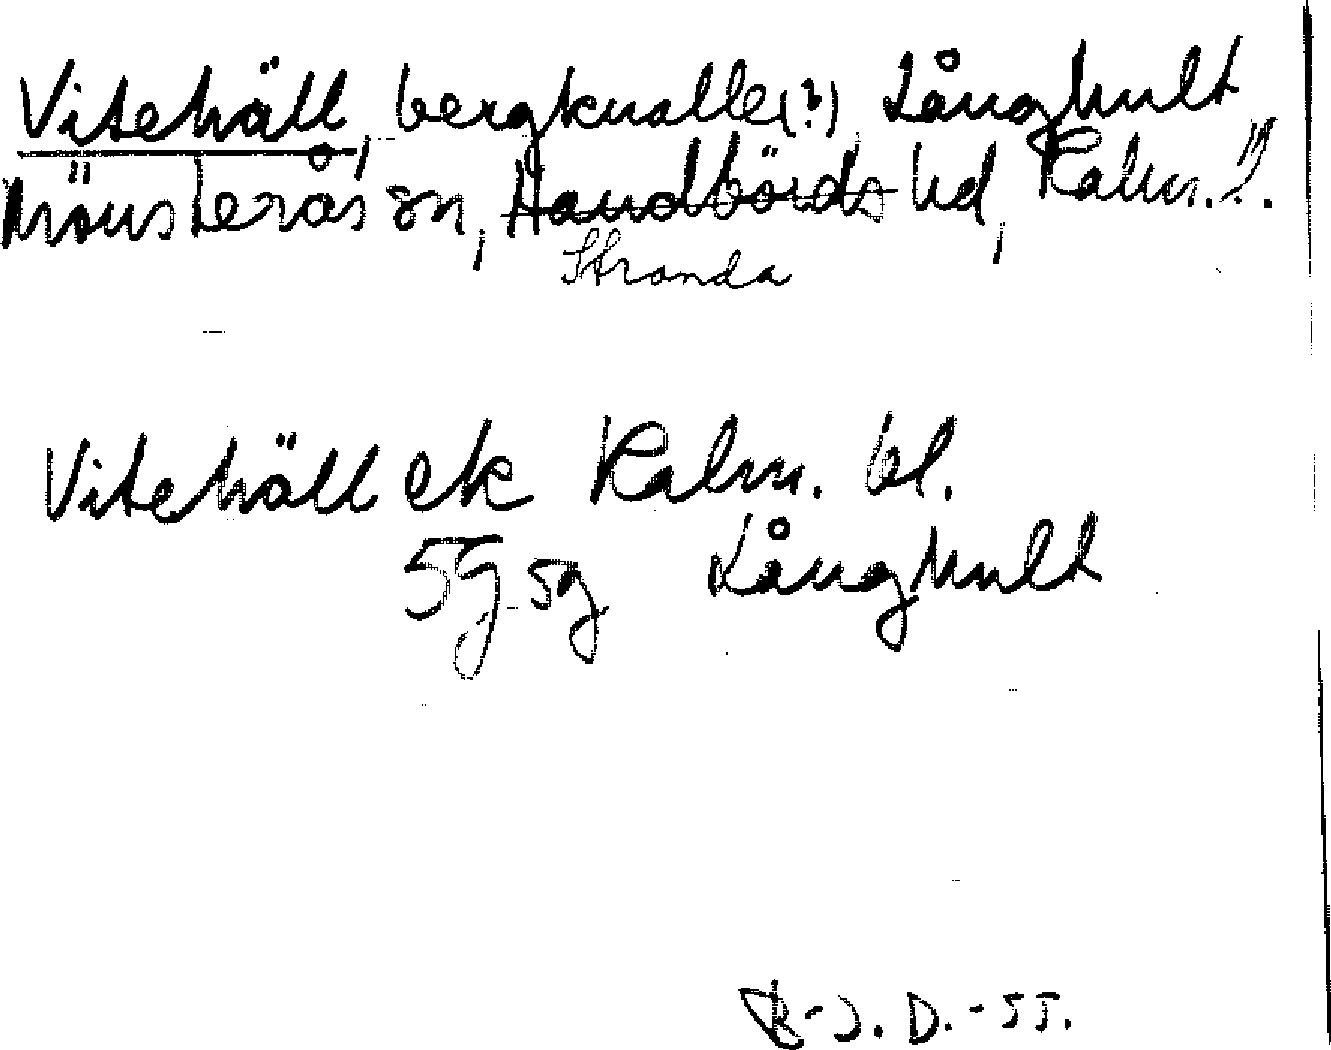 Vitehäll, bergknalle(?) Långhult,
Mönsterås sn, Handbörds hd, Kalm. l.
Stranda
Vitehäll ek Kalm. bl.
5g 5g Långhult
K-J. D. - 55.